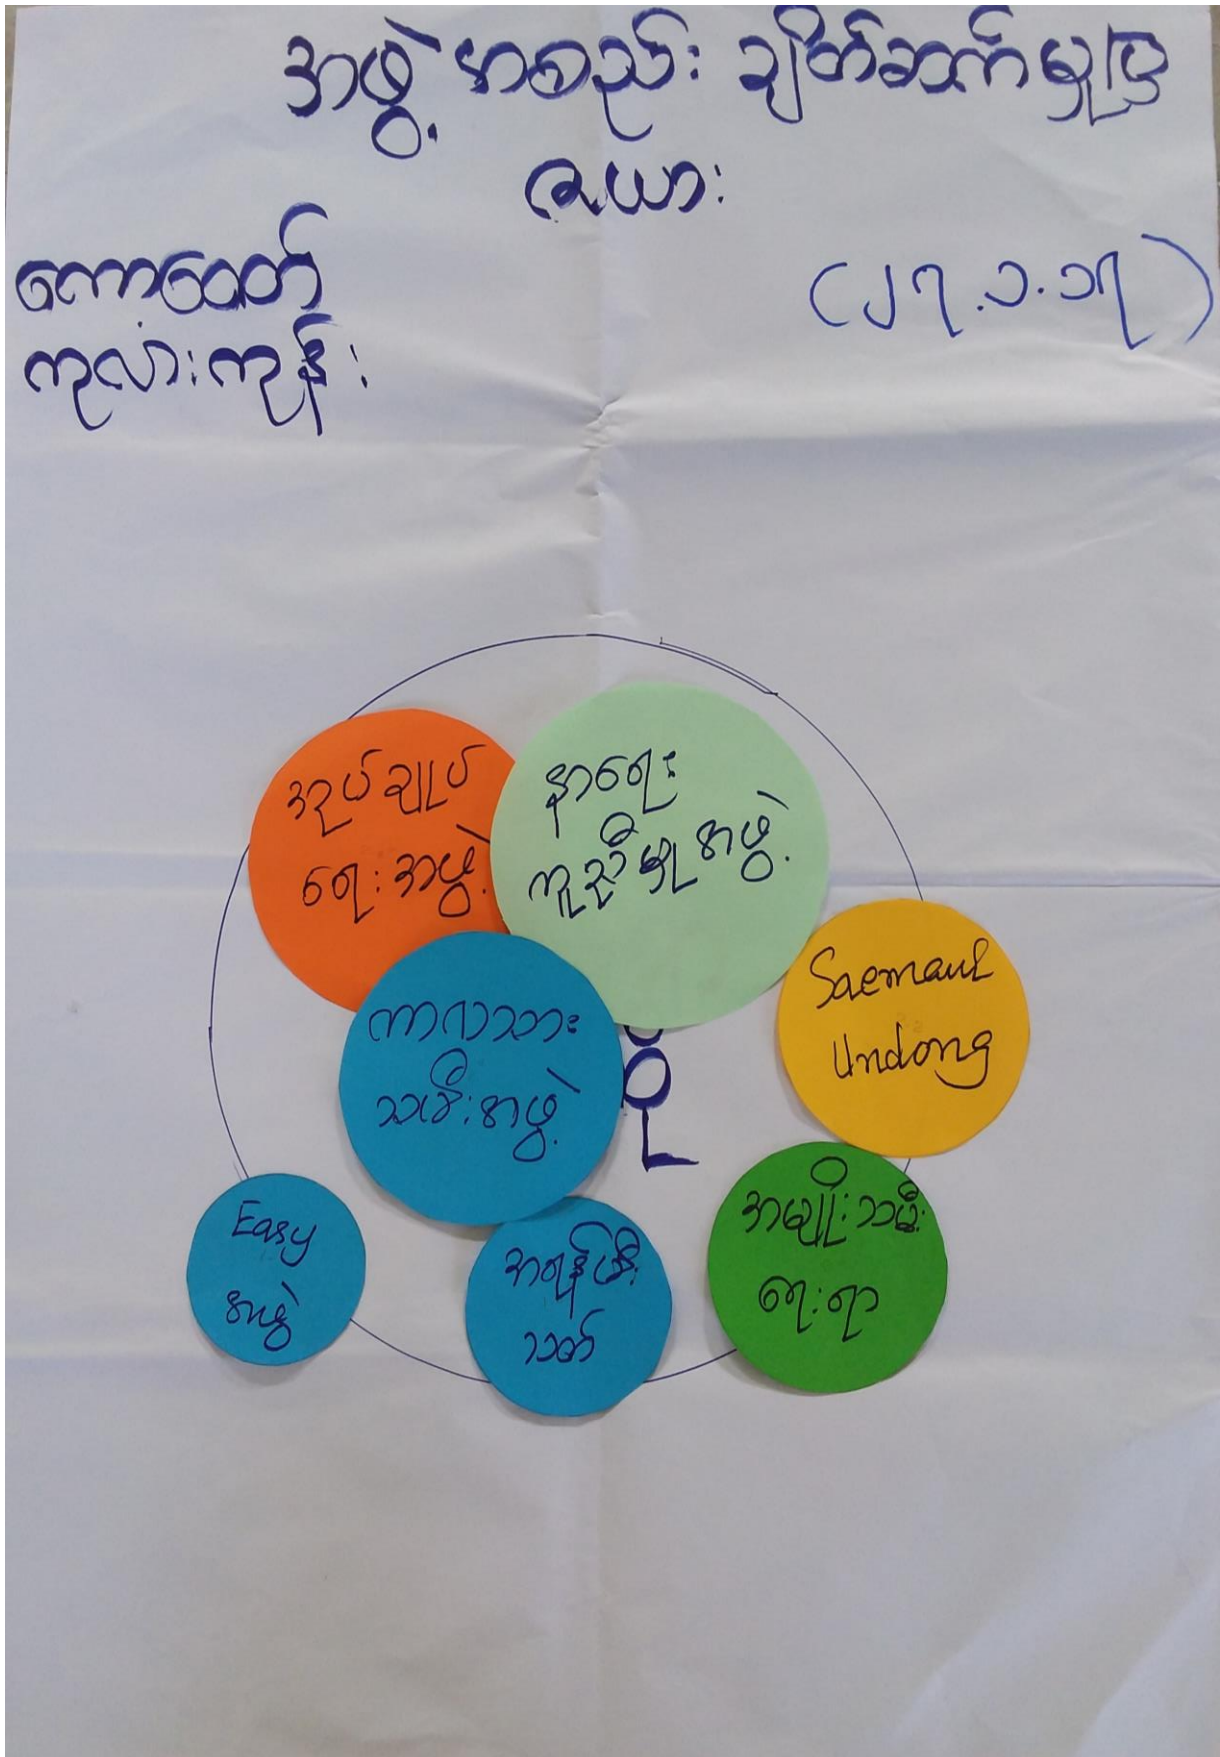 အဖွဲ့အစည်း ချိတ်ဆက်မှုပြ
ဇယား
ကော့ဒေါတ်
ကုလားကုန်း
(၂၇.၁.၁၇)
အုပ်ချုပ်
ရေးအဖွဲ့
နာရေး
ကူညီမှုအဖွဲ့
ကာလသား
သမီးအဖွဲ့
Saemaul
Undong
အမျိုးသမီး
ရေးရာ
Easy
အဖွဲ
အရန်မီး
သတ်